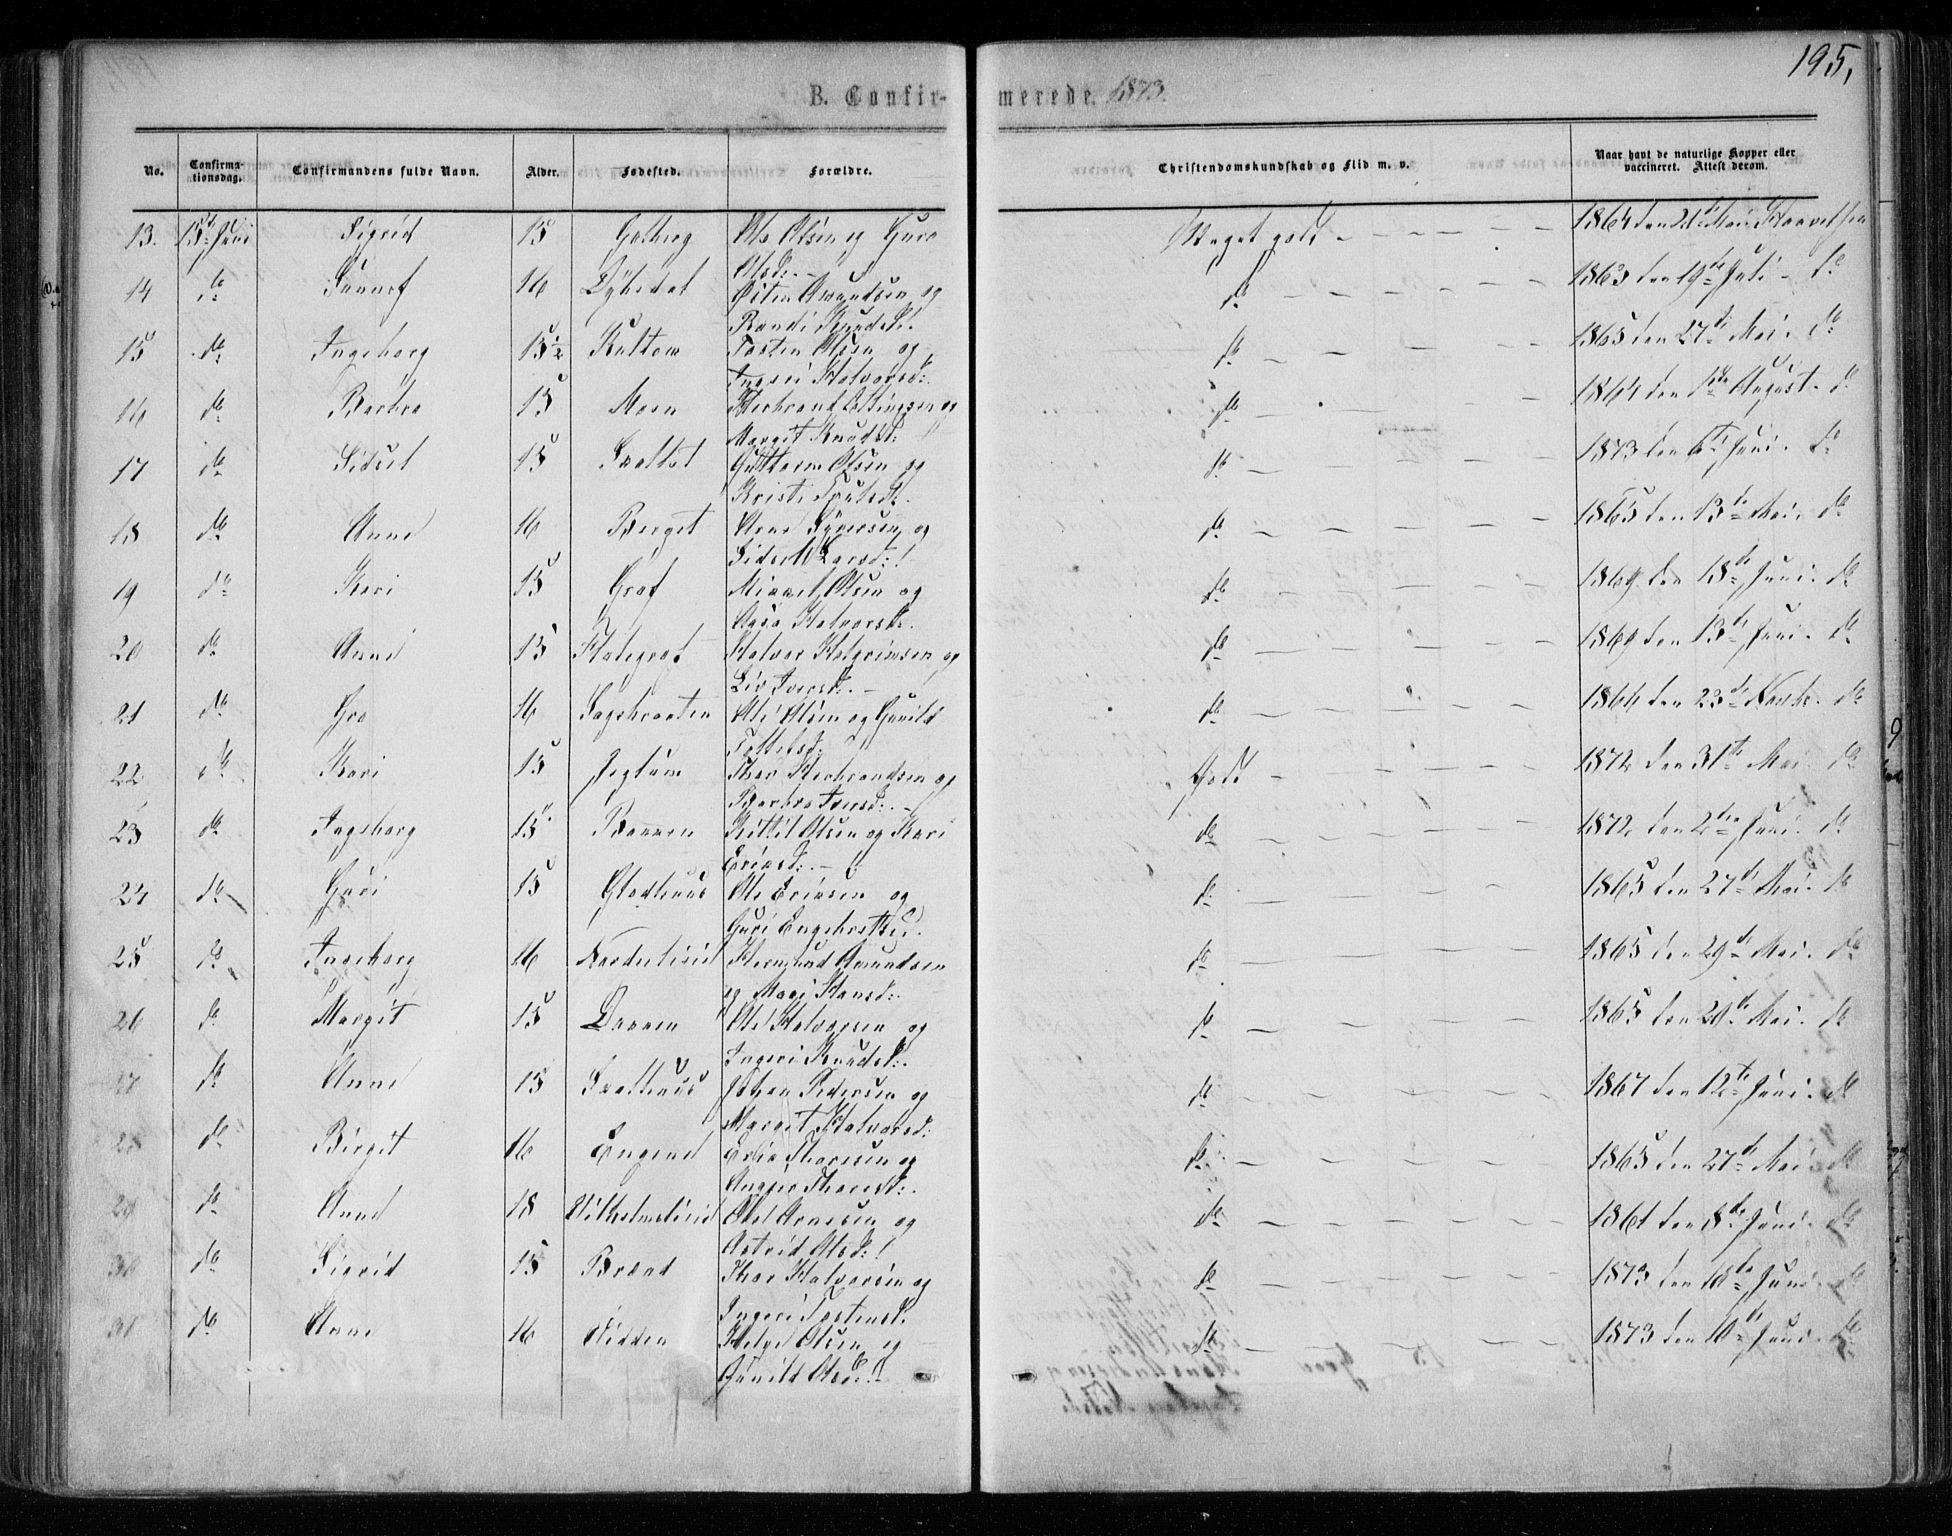 195,
B. Confirmerede. 1873.
No. Confirmationsdag. Confirmandens fulde Navn. Alder. Fødested. Forældre. Christendomskundskab og Flid m. v. Naar havt de naturlige Kopper eller vaccineret. Attest derom.
13. 15de Juni Sigrid 15 Golberg Ola Olsen og Guro Meget godt 1864 den 21de Mai
Olsd:
14 do 16 Østen Amundsen og do 1863 den 19de Juli do
Randi Knudsd:
15 do Ingeborg 15 1/2 Tosten Olsen og do 1865 den 27de Mai do
Ingeri Halvorsd:
16 do Barbro 15 Moen Herbrand og do 1864 den 1ste August do
Margit Knudsd:
17 do Sidsel 15 Guttorm Olsen og do 1873 den 6te Juni do
Kristi
18 do Anne 16 Berget Arne Syversen og do 1865 den 13de Mai do
Sidsel Larsd:
19 do Kari 15 Grøf Mikkel Olsen og do 1869 den 18de Juni do
Aase Halvorsd:
20 do Anne 15 Halvor Helgrimsen og do 1869 den 13de Juni do
Liv Iversd:
21 do Gro 16 Ole Olsen og Gunild do 1866 den 23de do
22 do Kari 15 Jeglum Thor Herbrandsen og Godt 1872 den 31te Mai do
Barbro Iversd:
23 do Ingeborg 15 Bakken Kittil Olsen og Kari do 1872 den 2den Juni do
Eriksd:
24 do Guri 15 Gladhuus Ole Eriksen og do 1865 den 27de Mai do
Guri Engebretsd:
25 do Ingeborg 16 Norderliseie Hermund Amundsen do 1865 den 29de Mai do
og Mari Hansd:
26 do Margit 15 Dokken Ole Halvorsen og do 1865 den 20de Mai do
Ingeri Knudsd:
27 do Anne 15 Johan Pedersen og do 1867 den 12te Juni do
Margit Halvorsd:
28 do Birgit 16 Engene Erik Thoresen og do 1865 den 27de Mai do
Thoresd:
29 do Anne 18 Vilhelmsliseie Ole Arnesen og do 1861 den 8de Juni do
Astrid Olsd:
30 do Sigrid 15 Thor Halvorsen og do 1873 den 10de Juni do
Ingeri Tostensd:
31 do Anne 16 Helge Olsen og do 1873 den 10de Juni do
Gunild Olsd: